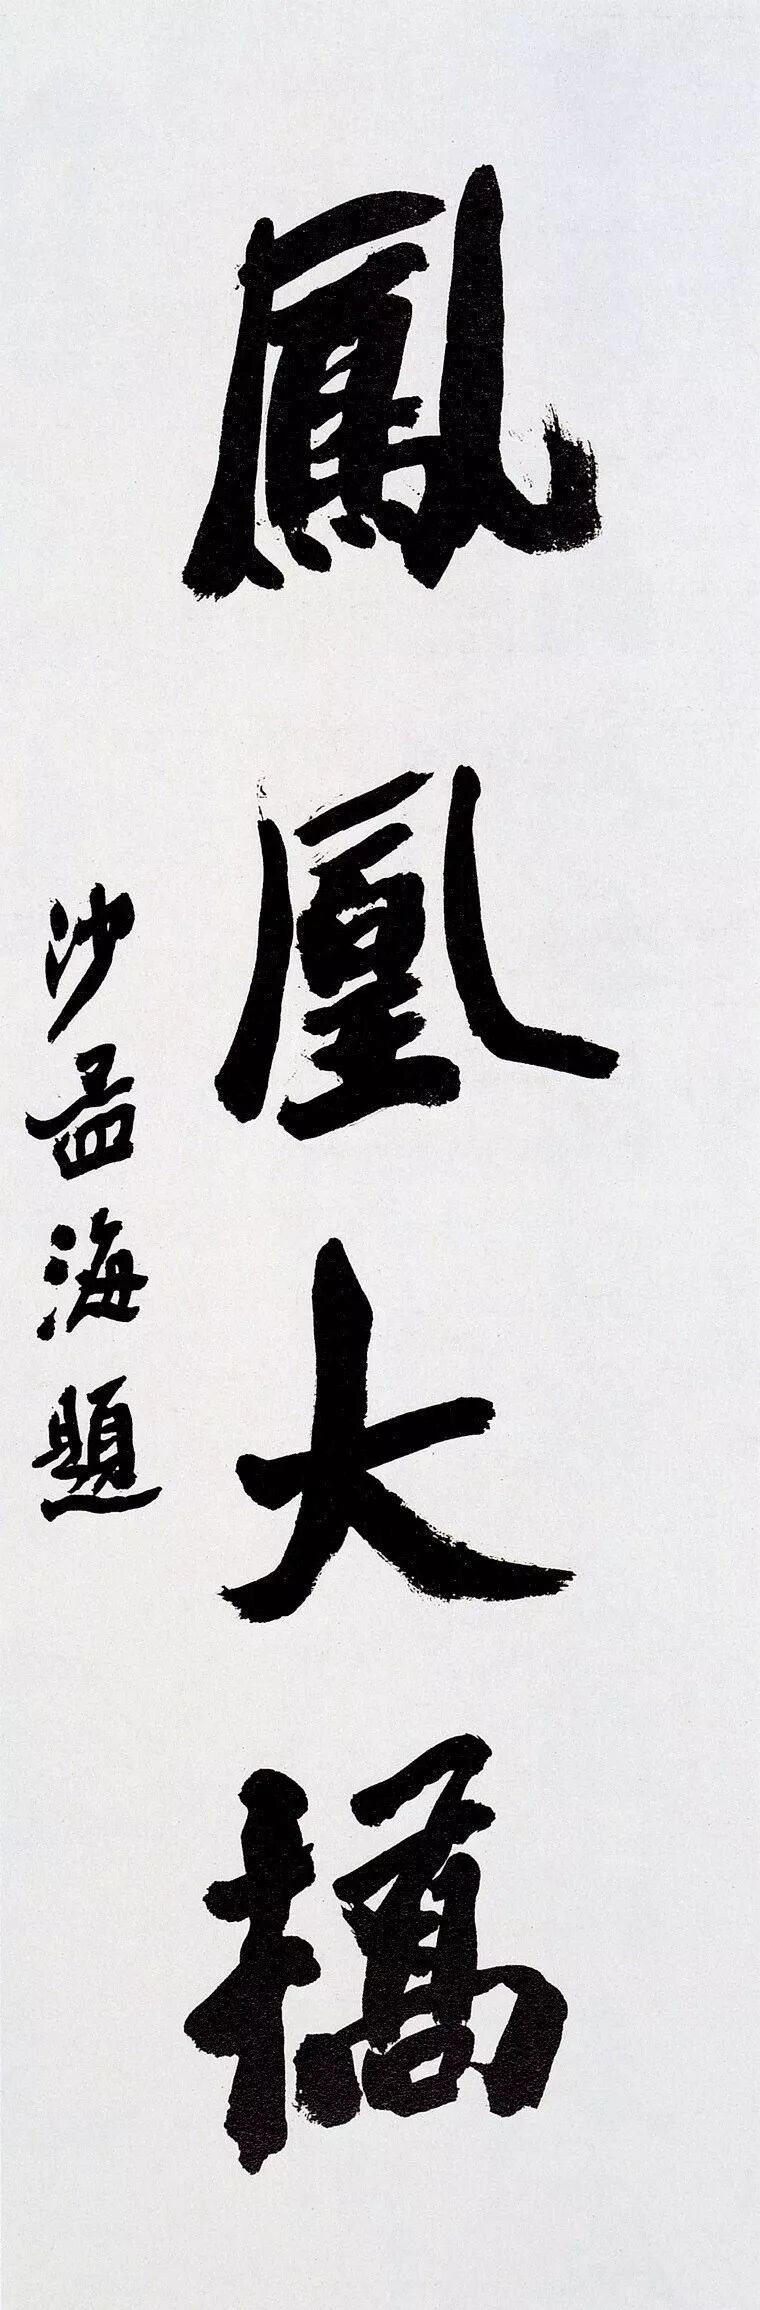 鳳凰大橋
沙孟海題